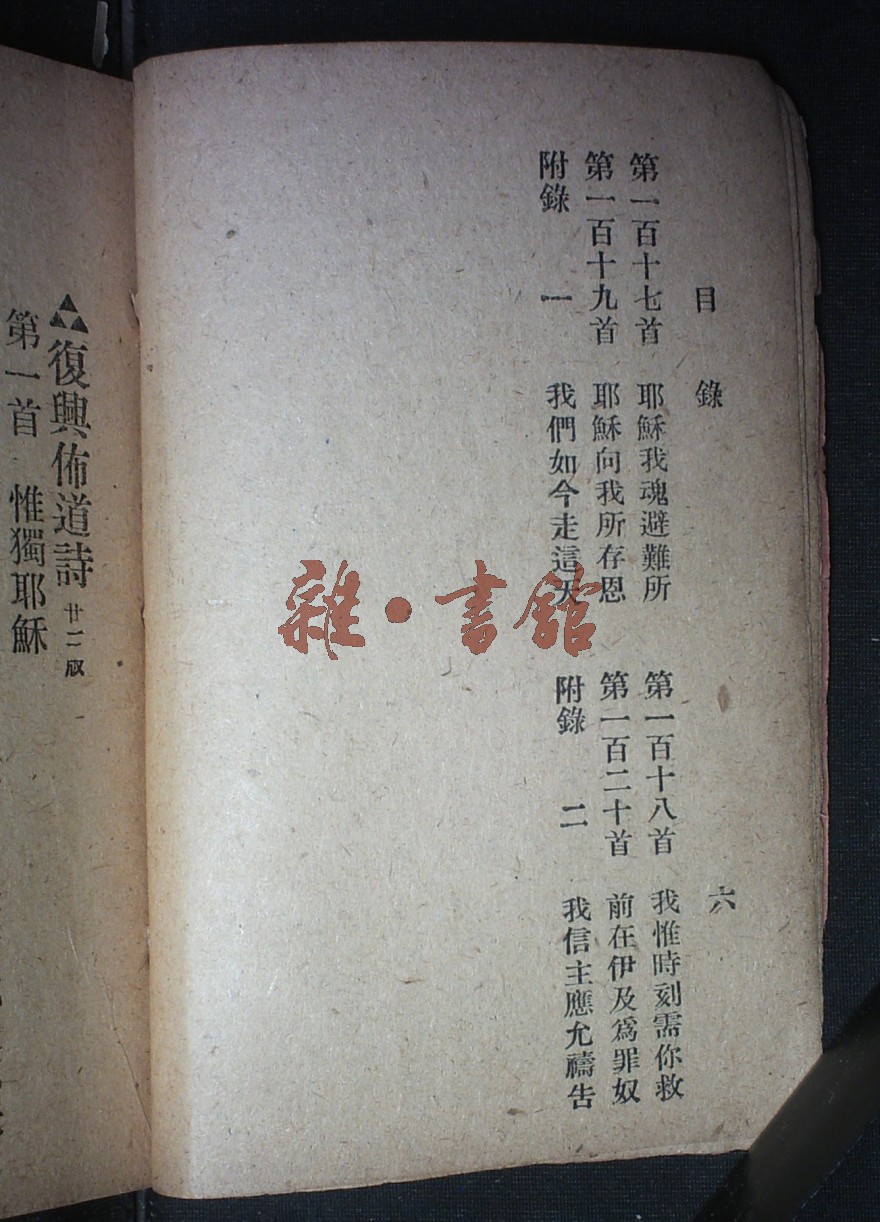 目錄 六
第一百十七首 耶穌我魂避難所 第一百十八首 我惟時刻需你救
第一百十九首 耶穌向我所存恩 第一百二十首 前在伊及為罪奴
附錄 一 我們如今走這天 附錄 二 我信主應允禱告
復興佈道詩 廿二版
第一首 惟獨耶穌
雜·書館